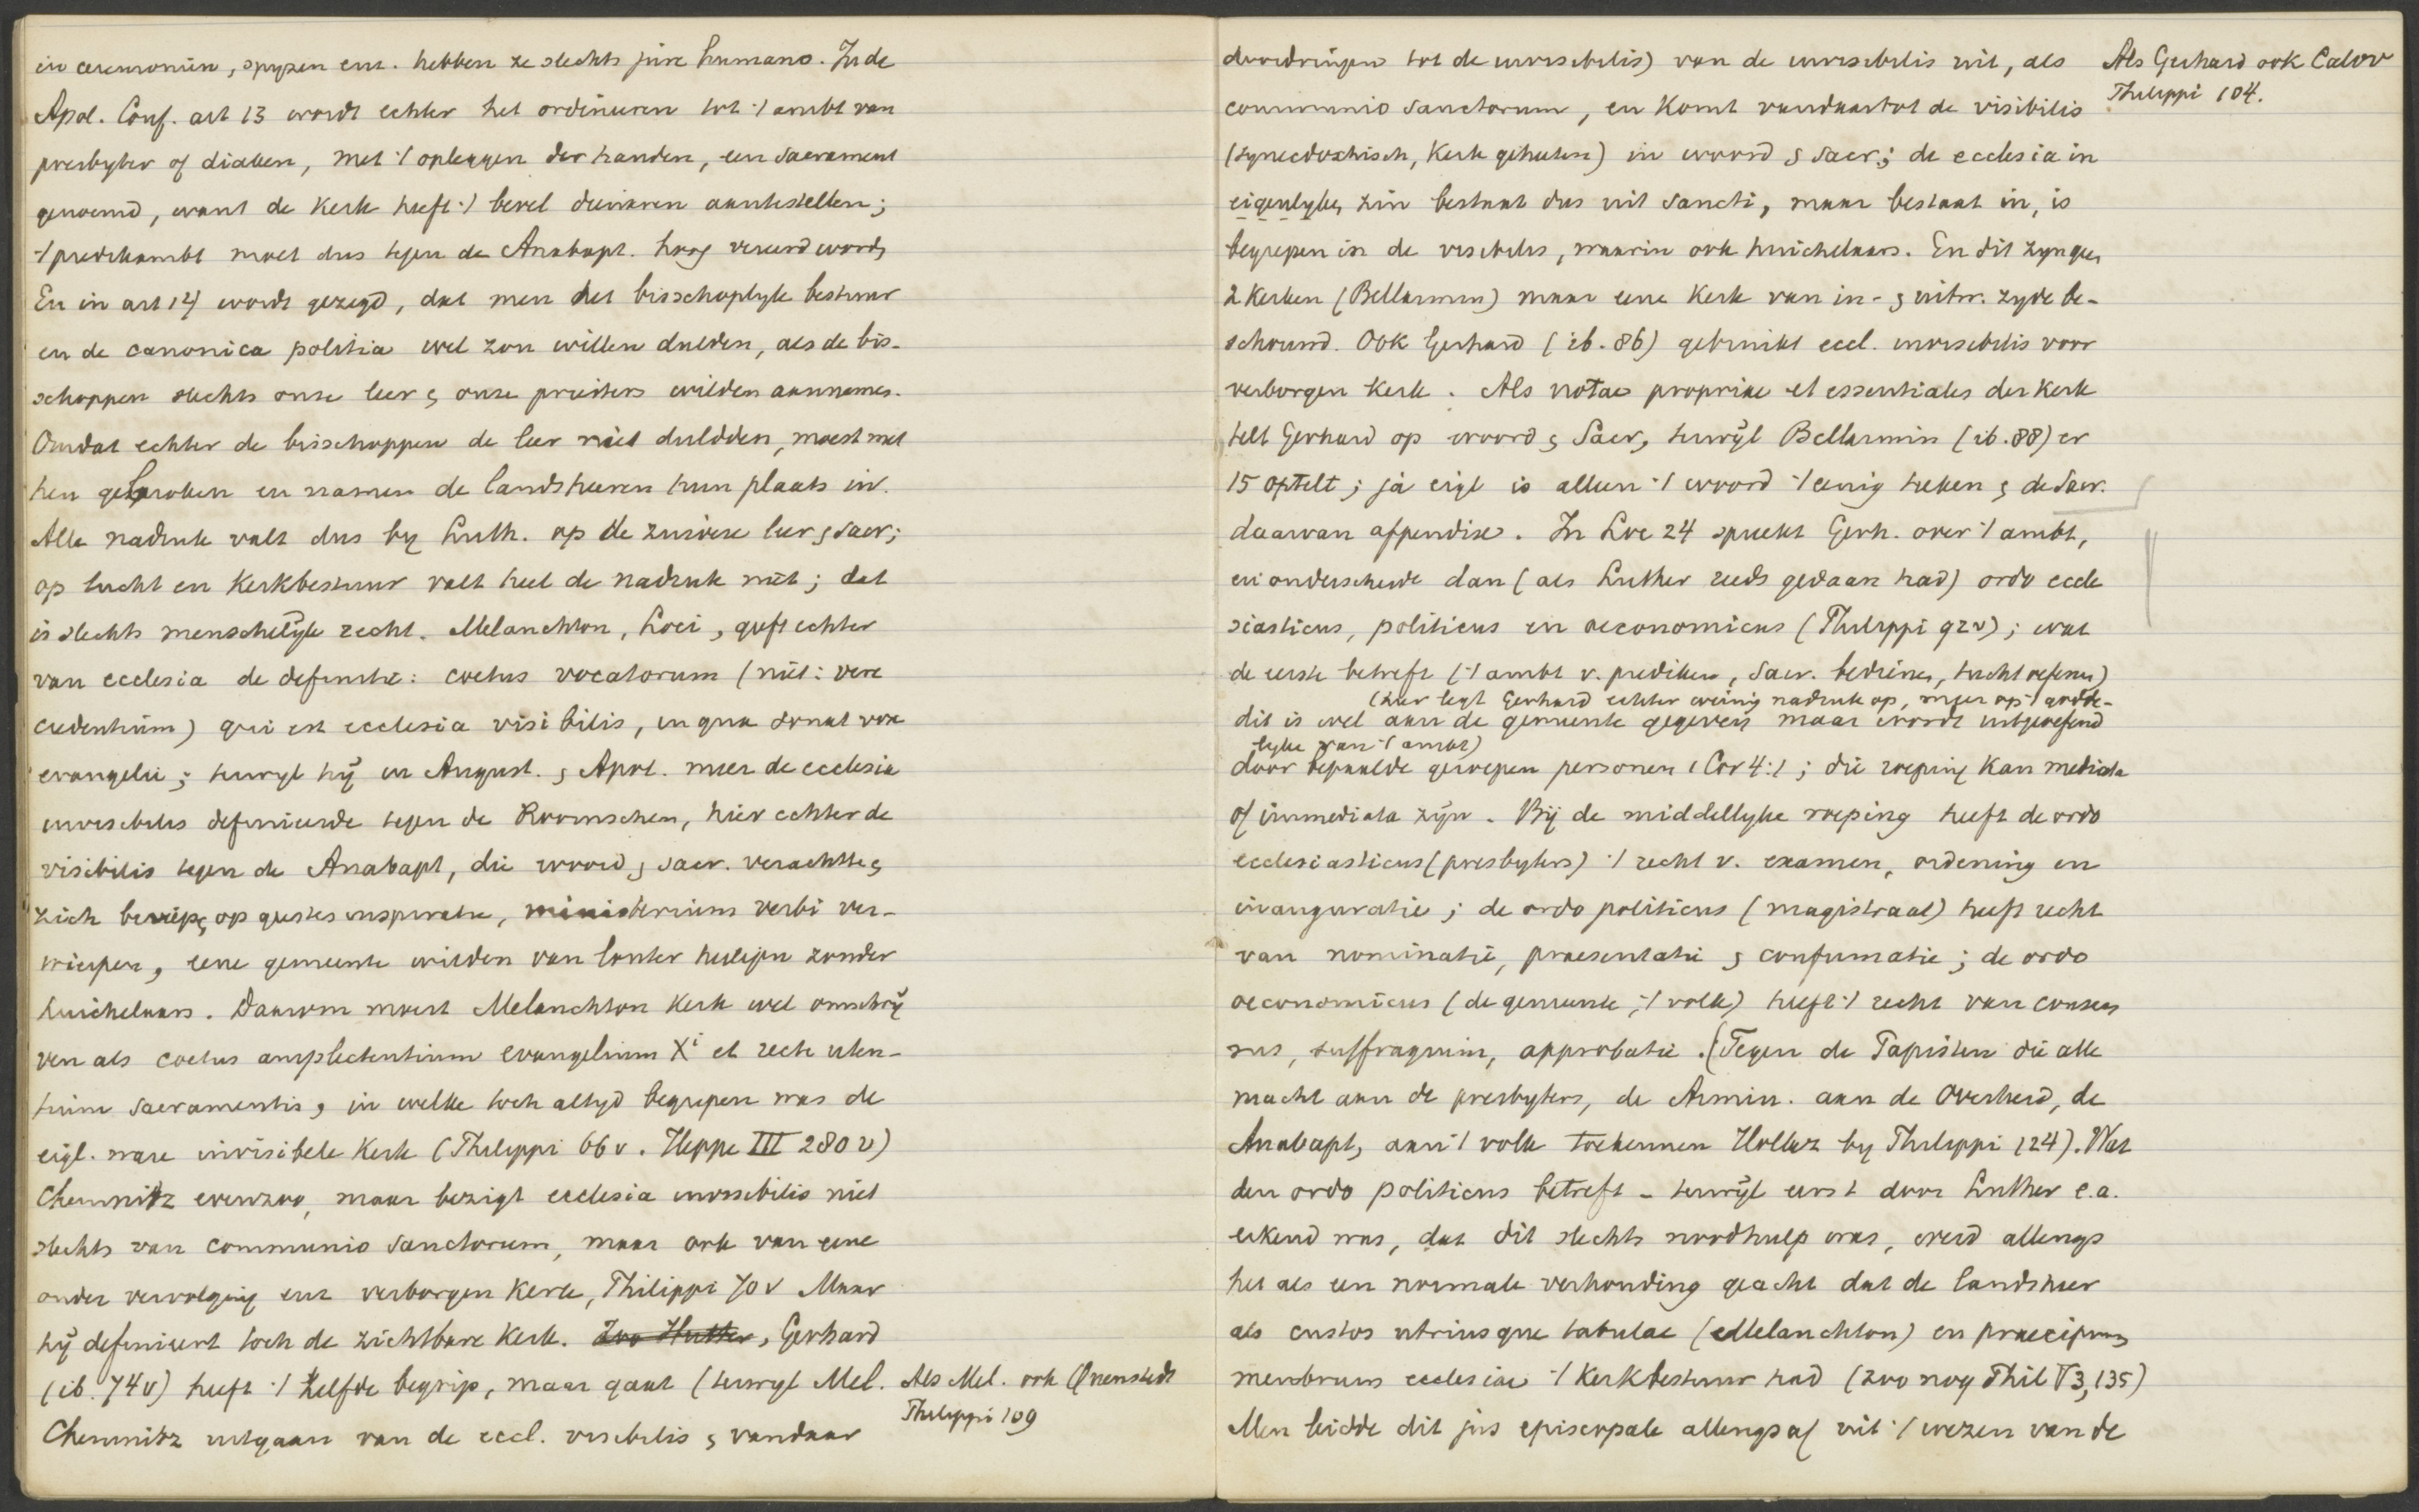 in ceremoniën, spyzen enz. hebben ze slechts jure humano. In de
Apol. Conf. art 13 wordt echter het ordineeren tot 't ambt van
presbyter of diaken, met 't opleggen der handen, een sacrament
genoemd, want de Kerk heeft 't bevel dienaren aantestellen;
't predikambt moet dus tegen de Anabapt. hoog vereerd worden
En in art 14 wordt gezegd, dat men het bisschoplyk bestuur
en de canonica politia wel zou willen dulden, als de bis-
schoppen slechts onze leer & onze priesters wilden aannemen.
Omdat echter de bisschoppen de leer niet duldden, moest met
hen gebroken en namen de landsheeren hun plaats in.
Alle nadruk valt dus by Luth. op de zuivere leer & sacr;
op tucht en Kerkbestuur valt heel de nadruk niet; dat
is slechts menschelijk recht. Melanchton, Loci, geeft echter
van ecclesia de definitie: coetus vocatorum (niet: vere
credentium) qui est ecclesia visibilis, in qua sonat vox
evangelii; terwyl hij in August. & Apol. meer de ecclesia
invisibilis definieerde tegen de Roomschen, hier echter de
visibilis tegen de Anabapt, die woord & sacr. verachtten
zich beriepen op geestes inspiratie, ministerium verbi ver-
wierpen, eene gemeente wilden van louter heiligen zonder
huichelaars. Daarom moest Melanchton Kerk wel omschrij
ven als coetus amplectentium evangelium Xi et recte uten-
tium sacramentis, in welke toch altyd begrepen was de
eigl. ware invisibele Kerk (Philippi 66v. Heppe III 280v)
Chemnitz evenzoo, maar bezigt ecclesia invisibilis niet
slechts van communio sanctorum, maar ook van eene
onder vervolging enz verborgen Kerk, Philippi 70v Maar
hij definieert toch de zichtbare Kerk. Zoo Hutter, Gerhard
(ib. 74v) heeft 't zelfde begrip, maar gaat (terwyl Mel.
Als Mel. ook Quenstedt
Philippi 109
Chemnitz uitgaan van de eccl. visibilis & vandaar
doordringen tot de invisibilis) van de invisibilis uit, als
Als Gerhard ook Calov
Philippi 104.
communio sanctorum, en Komt vandaar tot de visibilis
(synecdochisch, Kerk geheeten) in woord & sacr; de ecclesia in
eigenlyken zin bestaat dus uit sancti, maar bestaat in, is
begrepen in de visibilis, waarin ook huichelaars. En dit zyn geen
2 Kerken (Bellarmin) maar eene Kerk van in- & uitw. zyde be-
schouwd. Ook Gerhard (ib. 86) gebruikt eccl. invisibilis voor
verborgen Kerk. Als notae propriae et essentiales der Kerk
telt Gerhard op woord & Sacr, terwijl Bellarmin (ib. 88) er
15 optelt; ja eigl is alleen 't woord 't eenig teeken & de Sacr.
daarvan appendix. In Loc 24 spreekt Gerh. over 't ambt,
en onderscheidt dan (als Luther reeds gedaan had) ordo eccle
siasticus, politicus en oeconomicus (Philippi 92v); wat
de eerste betreft ('t ambt v. prediken, Sacr. bedienen, tucht oefenen)
(hier legt Gerhard echter weinig nadruk op, meer op 't godde-
dit is wel aan de gemeente gegeven maar wordt uitgeoefend
lyke van 't ambt)
door bepaalde geroepen personen 1 Cor 4:1; die roeping Kan mediata
of immediata zijn. Bij de middellyke roeping heeft de ordo
ecclesiasticus (presbyters) 't recht v. examen, ordening en
inauguratie; de ordo politicus (magistraat) heeft recht
van nominatie, praesentatie & confirmatie; de ordo
oeconomicus (de gemeente, 't volk) heeft 't recht van consen
sus, suffragium, approbatie. (Tegen de Papisten die alle
macht aan de presbyters, de Armin. aan de Overheid, de
Anabapt, aan 't volk toekennen Hollaz by Philippi 124). Wat
den ordo politicus betreft - terwijl eerst door Luther e.a.
erkend was, dat dit slechts noodhulp was, werd allengs
het als een normale verhouding geacht dat de landsheer
als custos utriusque tabulae (Melanchton) en praecipuum
membrum ecclesiae 't Kerkbestuur had (zoo nog Phil V3, 135)
Men leidde dit jus episcopale allengs af uit 't wezen van de